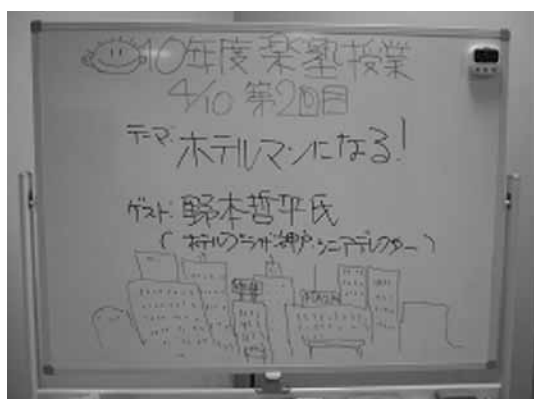 10年度 楽塾授業
4/10 第2回目
テーマ: ホテルマンになる!
ゲスト: 野本哲平氏
(ホテルプラザ神戸 シニアディレクター)